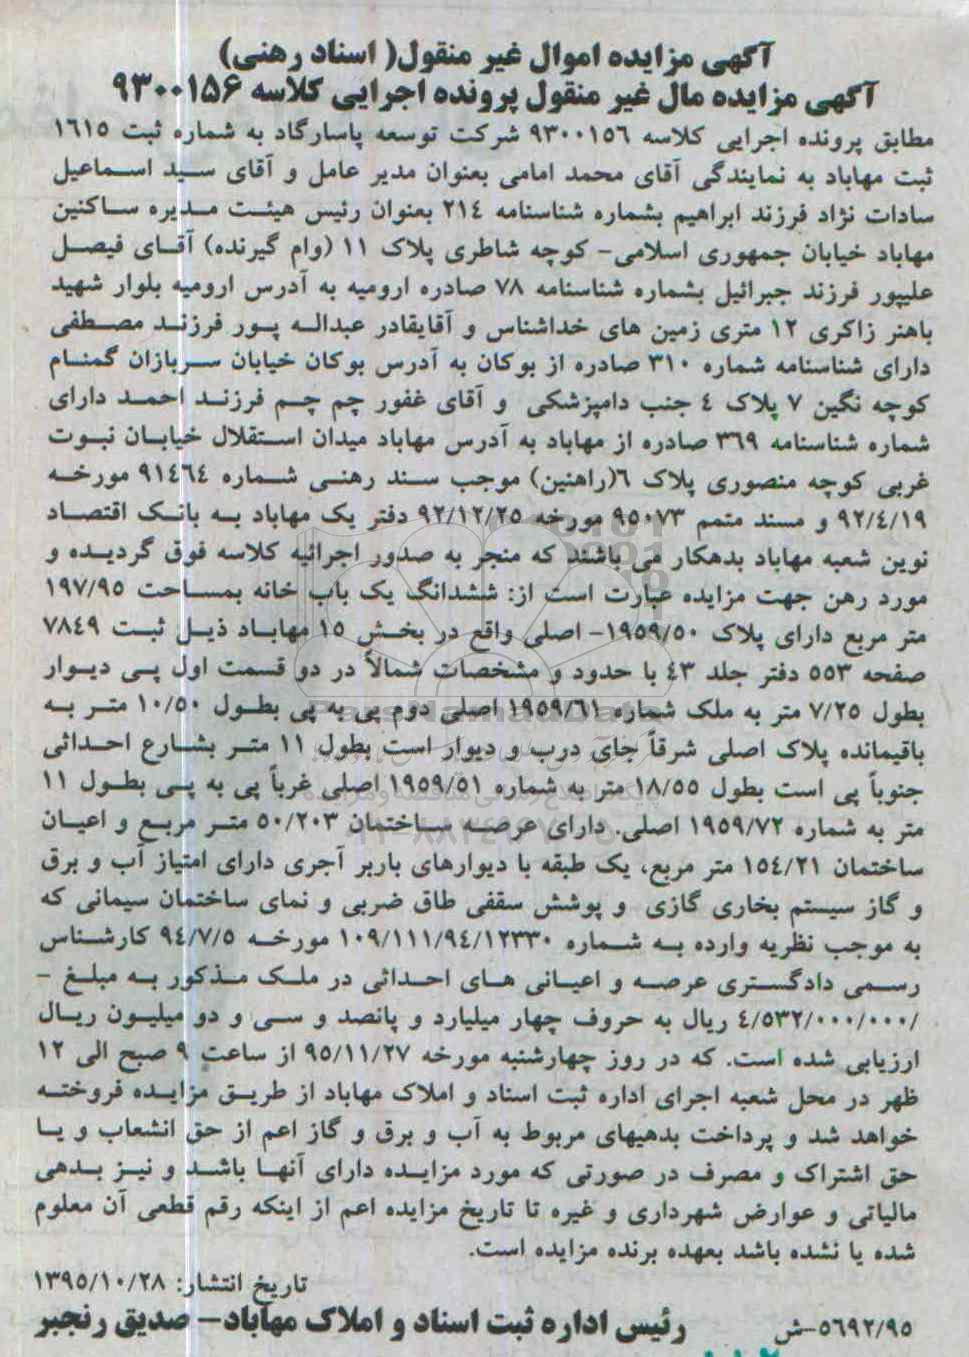 آگهی مزایده اموال غیر منقول( اسناد رهنی)
آگهی مزایده مال غیر منقول پرونده اجرایی کلاسه ۹۳۰۰۱۵۶
مطابق پرونده اجرایی کلاسه ۹۳۰۰۱۵۶ شرکت توسعه پاسارگاد به شماره ثبت ۱۶۱۵
ثبت مهاباد به نمایندگی آقای محمد امامی بعنوان مدیر عامل و آقای سید اسماعیل
سادات نژاد فرزند ابراهیم بشماره شناسنامه ۲۱۴ بعنوان رئیس هیئت مدیره ساکنین
مهاباد خیابان جمهوری اسلامی- کوچه شاطری پلاک ۱۱ (وام گیرنده) آقای فیصل
علیپور فرزند جبرائیل بشماره شناسنامه ۷۸ صادره ارومیه به آدرس ارومیه بلوار شهید
باهنر زاکری ۱۲ متری زمین های خداشناس و آقایقادر عبداله پور فرزند مصطفی
دارای شناسنامه شماره ۳۱۰ صادره از بوکان به آدرس بوکان خیابان سربازان گمنام
کوچه نگین ۷ پلاک ۴ جنب دامپزشکی و آقای غفور چم چم فرزند احمد دارای
شماره شناسنامه ۳۶۹ صادره از مهاباد به آدرس مهاباد میدان استقلال خیابان نبوت
غربی کوچه منصوری پلاک ۶(راهنین) موجب سند رهنی شماره ۹۱۴۶۴ مورخه
۹۲/۴/۱۹ و مسند متمم ۹۵۰۷۳ مورخه ۹۲/۱۲/۲۵ دفتر یک مهاباد به بانک اقتصاد
نوین شعبه مهاباد بدهکار می باشند که منجر به صدور اجرائیه کلاسه فوق گردیده و
مورد رهن جهت مزایده عبارت است از: ششدانگ یک باب خانه بمساحت ۱۹۷/۹۵
متر مربع دارای پلاک ۱۹۵۹/۵۰- اصلی واقع در بخش ۱۵ مهاباد ذیل ثبت ۷۸۴۹
صفحه ۵۵۳ دفتر جلد ۴۳ با حدود و مشخصات شمالاً در دو قسمت اول پی دیوار
بطول ۷/۲۵ متر به ملک شماره ۱۹۵۹/۶۱ اصلی دوم پی به پی بطول ۱۰/۵۰ متر به
باقیمانده پلاک اصلی شرقاً جای درب و دیوار است بطول ۱۱ متر بشارع احداثی
جنوباً پی است بطول ۱۸/۵۵ متر به شماره ۱۹۵۹/۵۱ اصلی غرباً پی به پی بطول ۱۱
متر به شماره ۱۹۵۹/۷۲ اصلی. دارای عرصه ساختمان ۵۰/۲۰۳ متر مربع و اعیان
ساختمان ۱۵۴/۲۱ متر مربع، یک طبقه با دیوارهای باربر آجری دارای امتیاز آب و برق
و گاز سیستم بخاری گازی و پوشش سقفی طاق ضربی و نمای ساختمان سیمانی که
به موجب نظریه وارده به شماره ۱۰۹/۱۱۱/۹۴/۱۲۳۳۰ مورخه ۹۴/۷/۵ کارشناس
رسمی دادگستری عرصه و اعیانی های احداثی در ملک مذکور به مبلغ -
/۴/۵۳۲/۰۰۰/۰۰۰ ریال به حروف چهار میلیارد و پانصد و سی و دو میلیون ریال
ارزیابی شده است. که در روز چهارشنبه مورخه ۹۵/۱۱/۲۷ از ساعت ۹ صبح الی ۱۲
ظهر در محل شعبه اجرای اداره ثبت اسناد و املاک مهاباد از طریق مزایده فروخته
خواهد شد و پرداخت بدهیهای مربوط به آب و برق و گاز اعم از حق انشعاب و یا
حق اشتراک و مصرف در صورتی که مورد مزایده دارای آنها باشد و نیز بدهی
مالیاتی و عوارض شهرداری و غیره تا تاریخ مزایده اعم از اینکه رقم قطعی آن معلوم
شده یا نشده باشد بعهده برنده مزایده است.
تاریخ انتشار: ۱۳۹۵/۱۰/۲۸
رئیس اداره ثبت اسناد و املاک مهاباد- صدیق رنجبر
۵۶۹۲/۹۵-ش